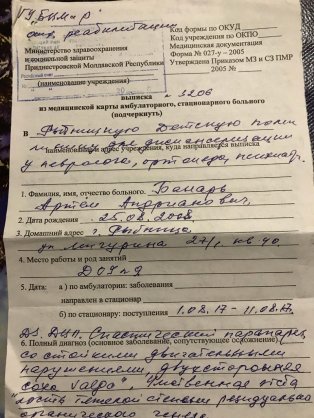 ГУ "БЦМиР"
отд. реабилитации
Министерство здравоохранения
и социальной защиты
Приднестровской Молдавской Республики
(наименование учреждения)
Код формы по ОКУД
Код учреждения по ОКПО
Медицинская документация
Форма № 027-у – 2005
Утверждена Приказом МЗ и СЗ ПМР
2005 №
ВЫПИСКА № 3206
из медицинской карты амбулаторного, стационарного больного
(подчеркнуть)
В Рыбницкую Детскую поли
для диспансеризации
наименование и адрес учреждения, куда направляется выписка
у невролога, ортопеда, психиатр.
1. Фамилия, имя, отчество больного.
Артём Андрианович,
2. Дата рождения 25.08.2008.
3. Домашний адрес г. Рыбница
ул 27/1 кв 40
4. Место работы и род занятий
5. Дата: а) по амбулатории: заболевания
направлен в стационар
б) по стационару: поступления 1.08.17 – 11.08.17.
DS. ДЦП. Спастический парапарез
6. Полный диагноз (основное заболевание, сопутствующее осложнение)
со стойкими двигательными
нарушениями, двухсторонняя
coxa valga, Умственная отста
лость тяжёлой степени резидуально
органического генеза